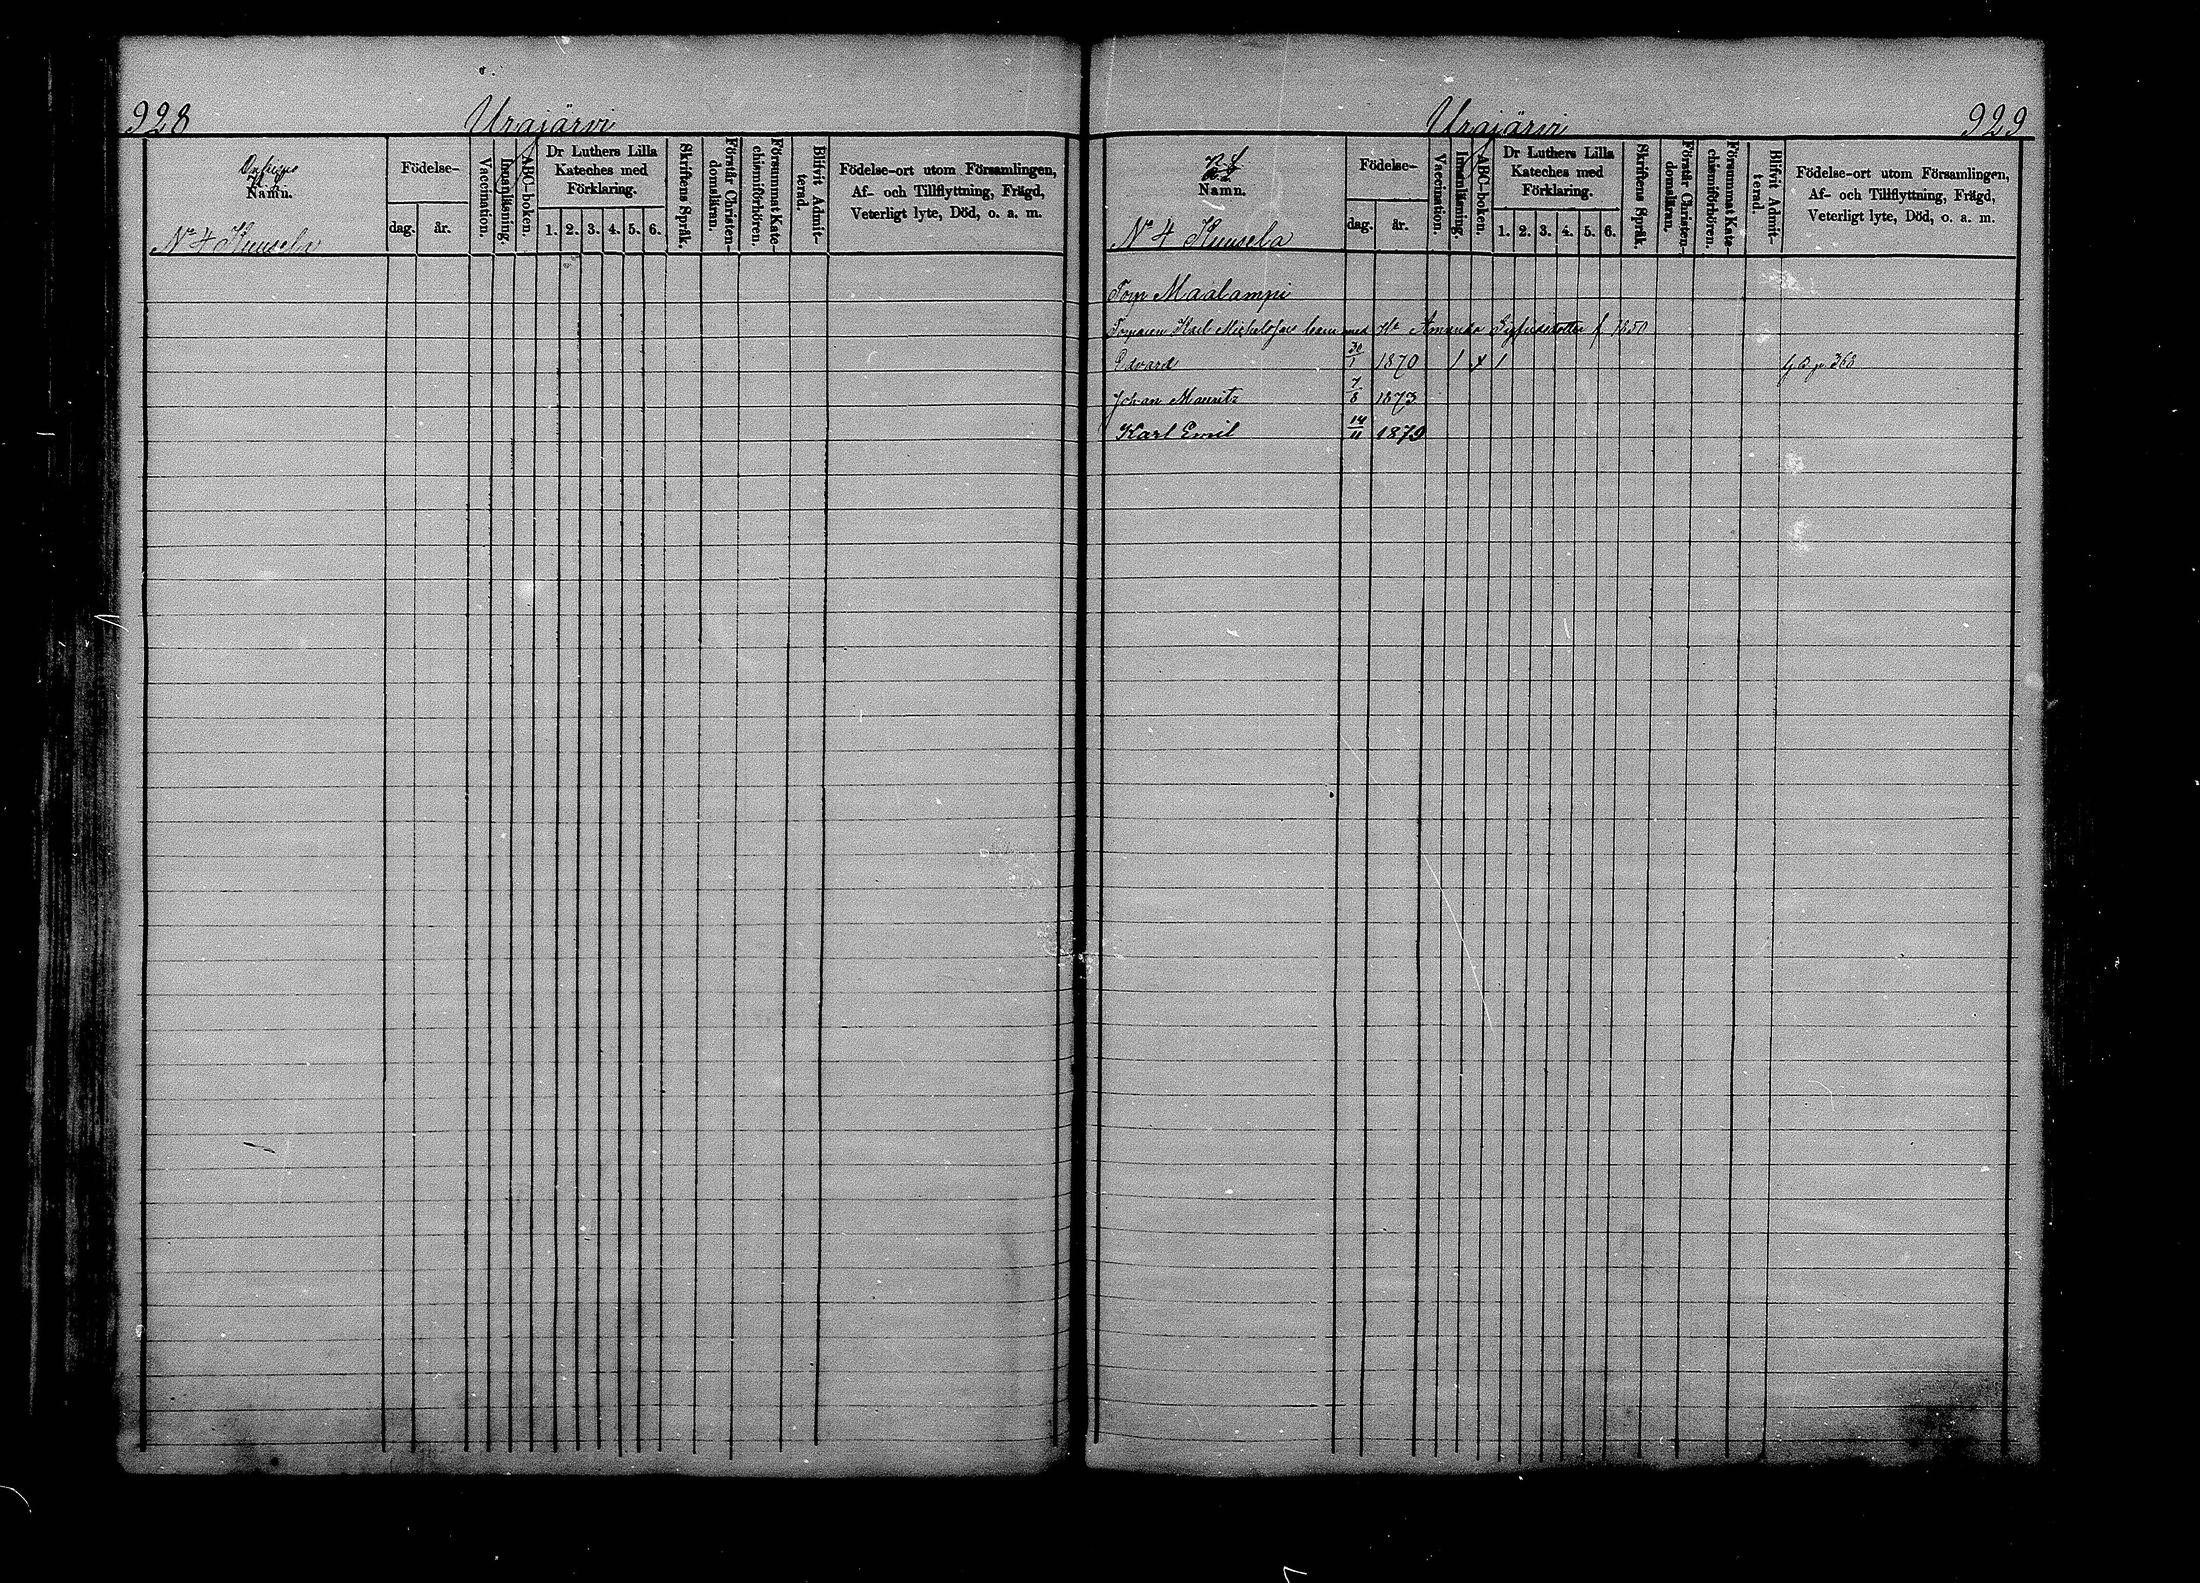 928
Urajärvi
Namn.
No 4 Kuusela
Födelse-
dag.
år.
Vaccination.
Innanläsning.
ABC-boken.
Dr Luthers Lilla
Kateches med
Förklaring.
1. 2. 3. 4. 5. 6.
Skriftens Språk.
Förstår Christen-
domsläran.
Försummat Kate-
chismiförhören.
Blifvit Admit-
terad.
Födelse-ort utom Församlingen,
Af- och Tillflyttning, Frägd,
Veterligt lyte, Död, o. a. m.
Urajärvi
929
Namn.
No 4 Kuusela
Födelse-
dag.
år.
Vaccination.
Innanläsning.
ABC-boken.
Dr Luthers Lilla
Kateches med
Förklaring.
1. 2. 3. 4. 5. 6.
Skriftens Språk.
Förstår Christen-
domsläran.
Försummat Kate-
chismiförhören.
Blifvit Admit-
terad.
Födelse-ort utom Församlingen,
Af- och Tillflyttning, Frägd,
Veterligt lyte, Död, o. a. m.
Torp Maalampi
Torparen Karl Michelsons barn med Amanda Sigfridsdotter f 1850
Edvard 30/1 1870 1 x 1 p 368
Johan Mauritz 7/8 1873
Karl Emil 14/11 1879